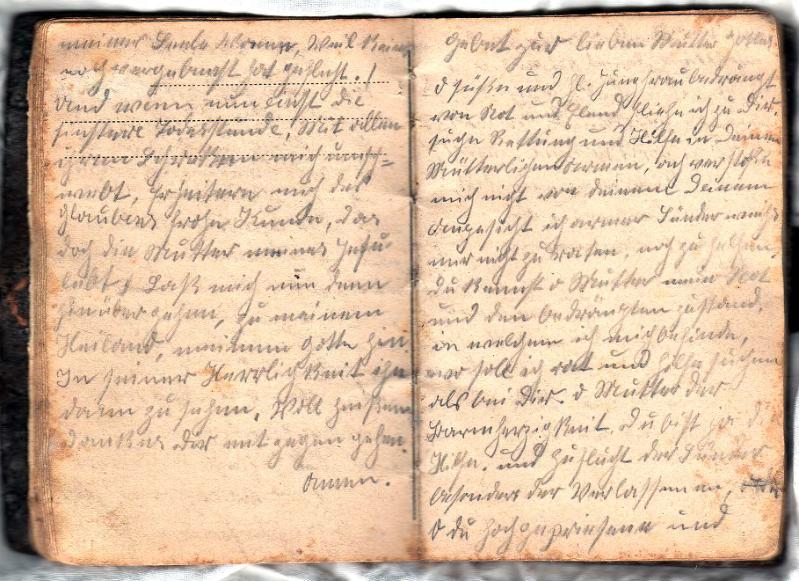 meiner Seele Wonne, Weil Keiner
noch vergebens hat gefleht. /
Und wenn nun einst die
finstere Todesstunde, Mit allen
ihren Schrecken mich umsch-
webt, Erheitern mich des
Glaubens frohe Kunde, das
doch die Mutter meines Jesu
lebt! Laß mich nun denn
hinübergehen, zu meinem
Heiland, meinem Gotte hin
In seiner Herrlichkeit ihn
dann zu sehen, Voll heißem
Dankes Dir entgegen gehen.
Amen.
Gebet zur lieben Mutter Gottes.
O süße und hl. Jungfrau bedrängt
von Not und Elend fliehe ich zu Dir,
suche Rettung und Hilfe in Deinen
Mütterlichen Armen, ach verstoße
mich nicht von deinem Deinem
Angesicht ich armer Sünder weiß
mir nicht zu raten, noch zu helfen,
du kennst o Mutter meine Not
und den bedrängten Zustand,
in welchem ich mich befinde,
wo soll ich rat und Hilfe suchen
als bei Dir. o Mutter der
Barmherzigkeit. du bist ja die
Hilfe. und Zuflucht der Sünder
besonders der Verlassenen,
O du hochgepriesene und